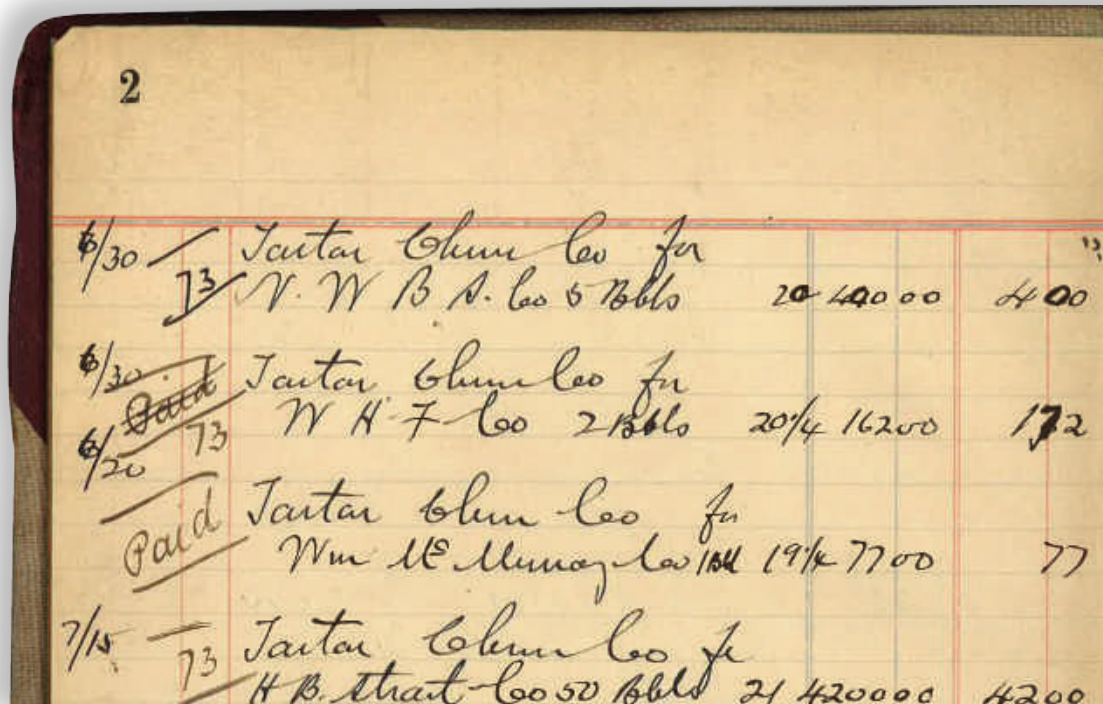 2
6/30 Tartar Chem Co for
73 N. W B S. Co 5 Bbls 20 400 00 4 00
6/30 Tartar Chem Co for
Paid 73 W H F Co 2 Bbls 20 1/4 162 00 1 2
6/20
Paid Tartar Chem Co for
Wm Mc Murray Co 1 Bbl 19 1/4 77 00 77
7/15 Tartar Chem Co fr
73 H B. Strait Co 50 Bbls 21 4200 00 42 00